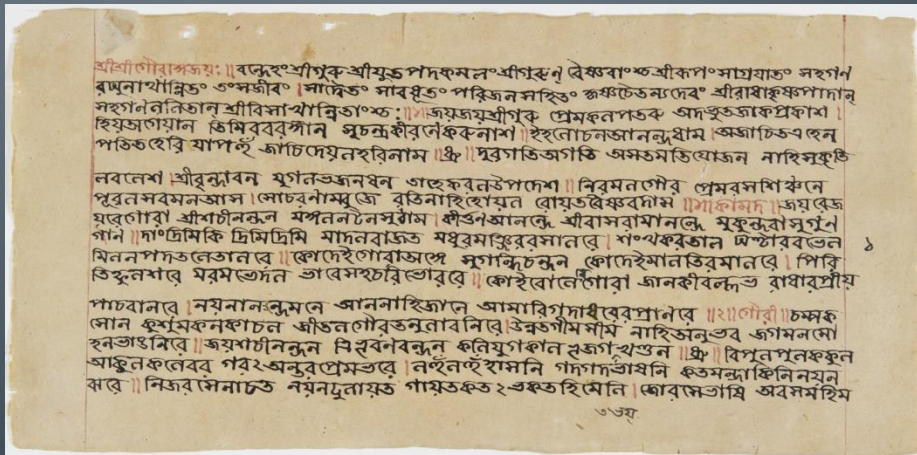 শ্রীশ্রীগৌরাঙ্গজয়ঃ॥ বন্দেহং শ্রীগুরু শ্রীযুত পদকমলং শ্রীগুরূন্ বৈষ্ণবাংশ্চ শ্রীরূপং সাগ্রযাতং সহগণ
রঘুনাথান্বিতং তং সজীবং। সাদ্বৈতং সাবধূতং পরিজন সহিতং কৃষ্ণচৈতন্যদেবং শ্রীরাধাকৃষ্ণপাদান্
সহগণললিতান্ শ্রীবিসাখান্বিতাংশ্চ॥ জয়জয়শ্রীগুরু প্রেমকলপতরু অদভুত জাক প্রকাশ
হিয় অগেয়ান তিমির বর গ্যান সুচন্দ্র কীরণে করু নাশ। ইহ লোচন আনন্দধাম। অজাচিত এহেন
পতিত হেরি যাপহুঁ জাচি দেয়ল হরিনাম॥ধ্রু॥ দুরগতি অগতি অসতমতি যোজন নাহি সুকৃতি
লবলেশ। শ্রীবৃন্দাবন যুগল ভজন ধন তাহে করল উপদেশ॥ নিরমল গৌর প্রেমরস শিঞ্চনে
পূরল সব মন আস। সো চরণাম্বুজে রতি নাহি হোয়ল রোয়ত বৈষ্ণবদাস॥ কামদ॥ জয়রে জ
য়রে গোরা শ্রীশচীনন্দন মঙ্গল নটন সুঠাম। কীর্ত্তন আনন্দে শ্রীবাস রামানন্দে মুকুন্দ বাসু গুণ
গান॥ দাং দ্রিমিকি দ্রিমি দ্রিমি মাদল বাজত মধুর মঞ্জীর রসাল রে। শংখ করতাল ঘণ্টারব ভেল
মিলল পদতলে তাল রে॥ কো দেই গোরা অঙ্গে সুগন্ধি চন্দন কো দেই মালতির মাল রে। পিরি
তি ফুলশরে মরম ভেদল ভাবে সহচরি ভোর রে॥ কোই বোলে গোরা জানকীবল্লভ রাধার প্রীয়
পাচবান রে। নয়নানন্দ মনে আন নাহি জানে আমারি গদাধরের প্রাণ রে॥২॥গৌরী॥ চম্পক
সোন কুশুম কনকাচল জীতল গৌর তনু লাবনি রে। উন্নত গীম সীম নাহি অনুভব জগমনমো
হন ভাঙনি রে॥ জয় শচীনন্দন ত্রিভুবন বন্দন কলিযুগ কাল ভুজগ খণ্ডন॥ধ্রু॥ বিপুল পুলক কুল
আকুল কলেবর গর২ অন্তর প্রেমভরে। লহুঁ লহুঁ হাসনি গদগদ ভাষনি কত মন্দাকিনি নয়ন
ঝরে॥ নিজ রসে নাচত নয়ন ঢুলায়ত গায়ত কত২ ভকতহি মেলি। জো রসে ভাষি অবস মহিম
১